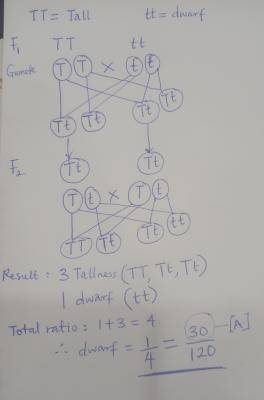 TT = Tall tt = dwarf
F1 TT tt
Gamete T T × t t
Tt Tt Tt Tt
F2 Tt Tt
T t × T t
TT Tt Tt tt
Result : 3 Tallness (TT, Tt, Tt)
1 dwarf (tt)
Total ratio : 1+3 = 4
∴ dwarf = 1/4 = 30/120 — [A]